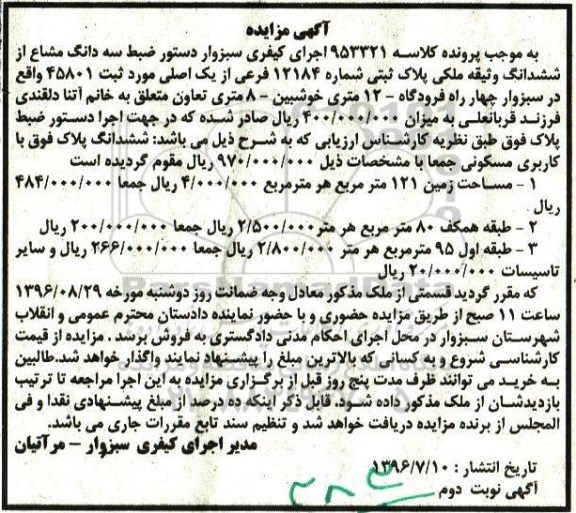 آگهی مزایده
به موجب پرونده کلاسه ۹۵۳۳۲۱ اجرای کیفری سبزوار دستور ضبط سه دانگ مشاع از
ششدانگ وثیقه ملکی پلاک ثبتی شماره ۱۲۱۸۴ فرعی از یک اصلی مورد ثبت ۴۵۸۰۱ واقع
در سبزوار چهار راه فرودگاه - ۱۲ متری خوشبین - ۸ متری تعاون متعلق به خانم آتنا دلقندی
فرزند قربانعلی به میزان ۴۰۰/۰۰۰/۰۰۰ ریال صادر شده که در جهت اجرا دستور ضبط
پلاک فوق طبق نظریه کارشناس ارزیابی که به شرح ذیل می باشد: ششدانگ پلاک فوق با
کاربری مسکونی جمعا با مشخصات ذیل ۹۷۰/۰۰۰/۰۰۰ ریال مقوم گردیده است
۱ - مساحت زمین ۱۲۱ متر مربع هر مترمربع ۴/۰۰۰/۰۰۰ ریال جمعا ۴۸۴/۰۰۰/۰۰۰
ریال
۲ - طبقه همکف ۸۰ متر مربع هر متر ۲/۵۰۰/۰۰۰ ریال جمعا ۲۰۰/۰۰۰/۰۰۰ ریال
۳ - طبقه اول ۹۵ مترمربع هر متر ۲/۸۰۰/۰۰۰ ریال جمعا ۲۶۶/۰۰۰/۰۰۰ ریال و سایر
تاسیسات ۲۰/۰۰۰/۰۰۰ ریال
که مقرر گردید قسمتی از ملک مذکور معادل وجه ضمانت روز دوشنبه مورخه ۱۳۹۶/۰۸/۲۹
ساعت ۱۱ صبح از طریق مزایده حضوری و با حضور نماینده دادستان محترم عمومی و انقلاب
شهرستان سبزوار در محل اجرای احکام مدنی دادگستری به فروش برسد . مزایده از قیمت
کارشناسی شروع و به کسانی که بالاترین مبلغ را پیشنهاد نمایند واگذار خواهد شد.طالبین
به خرید می توانند ظرف مدت پنج روز قبل از برگزاری مزایده به این اجرا مراجعه تا ترتیب
بازدیدشان از ملک مذکور داده شود. قابل ذکر اینکه ده درصد از مبلغ پیشنهادی نقدا و فی
المجلس از برنده مزایده دریافت خواهد شد و تنظیم سند تابع مقررات جاری می باشد.
مدیر اجرای کیفری سبزوار - مرآتیان
تاریخ انتشار : ۱۳۹۶/۷/۱۰
آگهی نوبت دوم